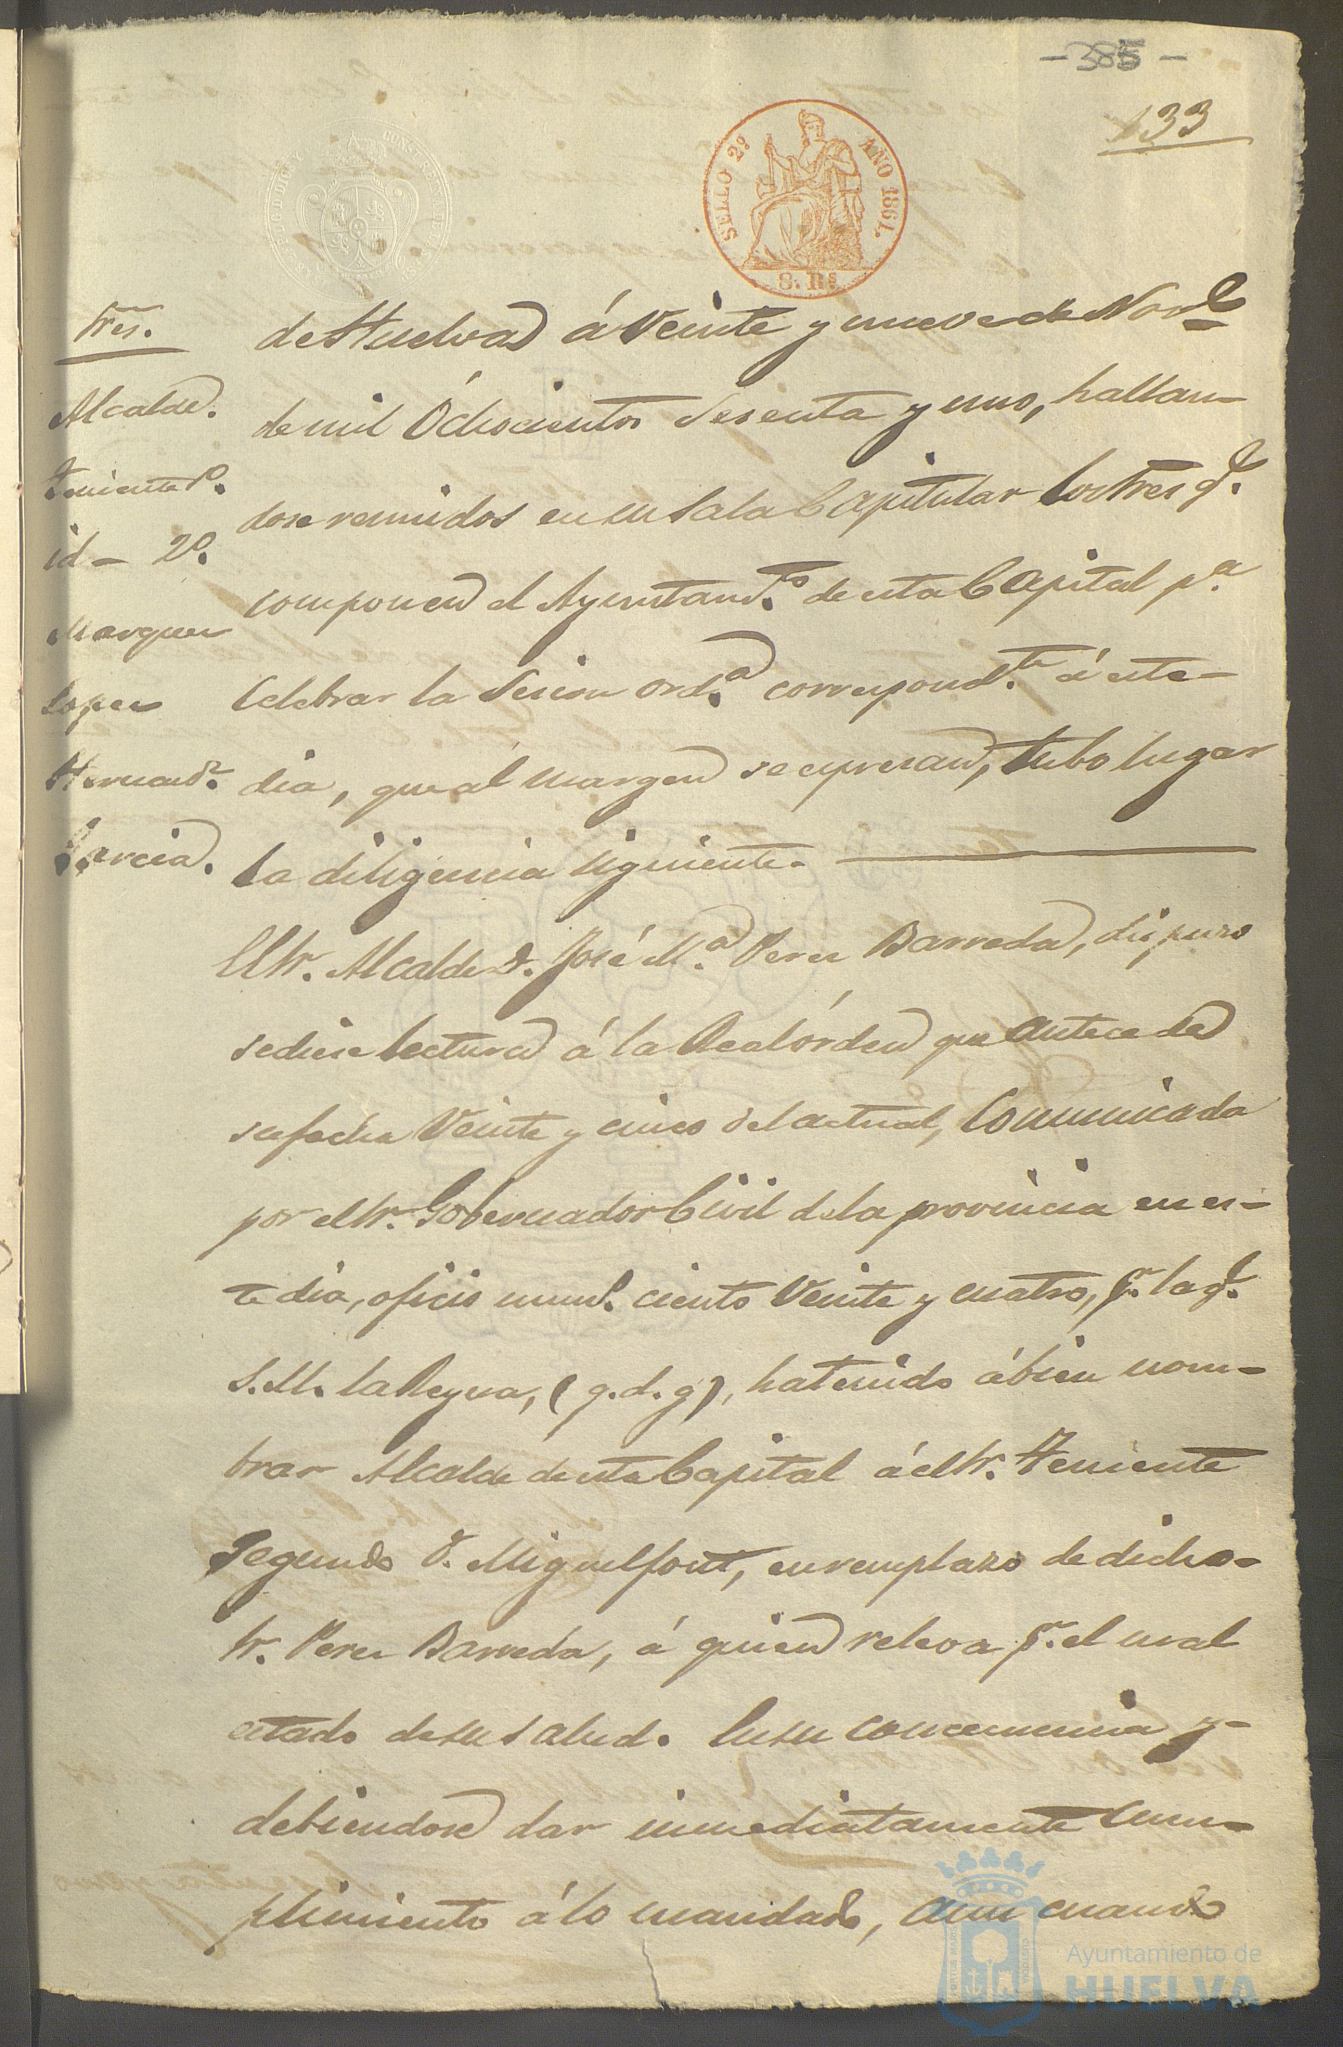 - 385 -
133
SELLO 2º AÑO 1861.
8. Rs
Sres.
Alcalde.
Teniente 1º.
id - 2º.
Marquez
Lopez
Hernandz.
Garcia.
de Huelva á Veinte y nueve de Nove
de mil Óchocientos Sesenta y uno, hallan-
dose reunidos en su Sala Capitular los Sres q.e
componen el Ayuntam.to de esta Capital p.a
celebrar la Sesion ord.a correspond.te á este
dia, que al margen se espresan, tubo lugar
la diligencia siguiente.
El Sr. Alcalde D. José M.a Perez Barreda, dispuso
se diese lectura á la Real órden que antecede
su fecha Veinte y cinco del actual, comunicada
por el Sr. Gobernador Civil de la provincia en es-
te dia, oficio num.o ciento Veinte y cuatro, p.r la q.e
S. M. la Reyna, (q. d. g), ha tenido á bien nom-
brar Alcalde de esta Capital á el Sr. Teniente
Segundo D. Miguel font, en remplazo de dicho
Sr. Perez Barreda, á quien releva p.r el mal
estado de su salud. En su concecuencia y
debiendose dar inmediatamente cum-
plimiento á lo mandado, aun cuando
Ayuntamiento de
HUELVA